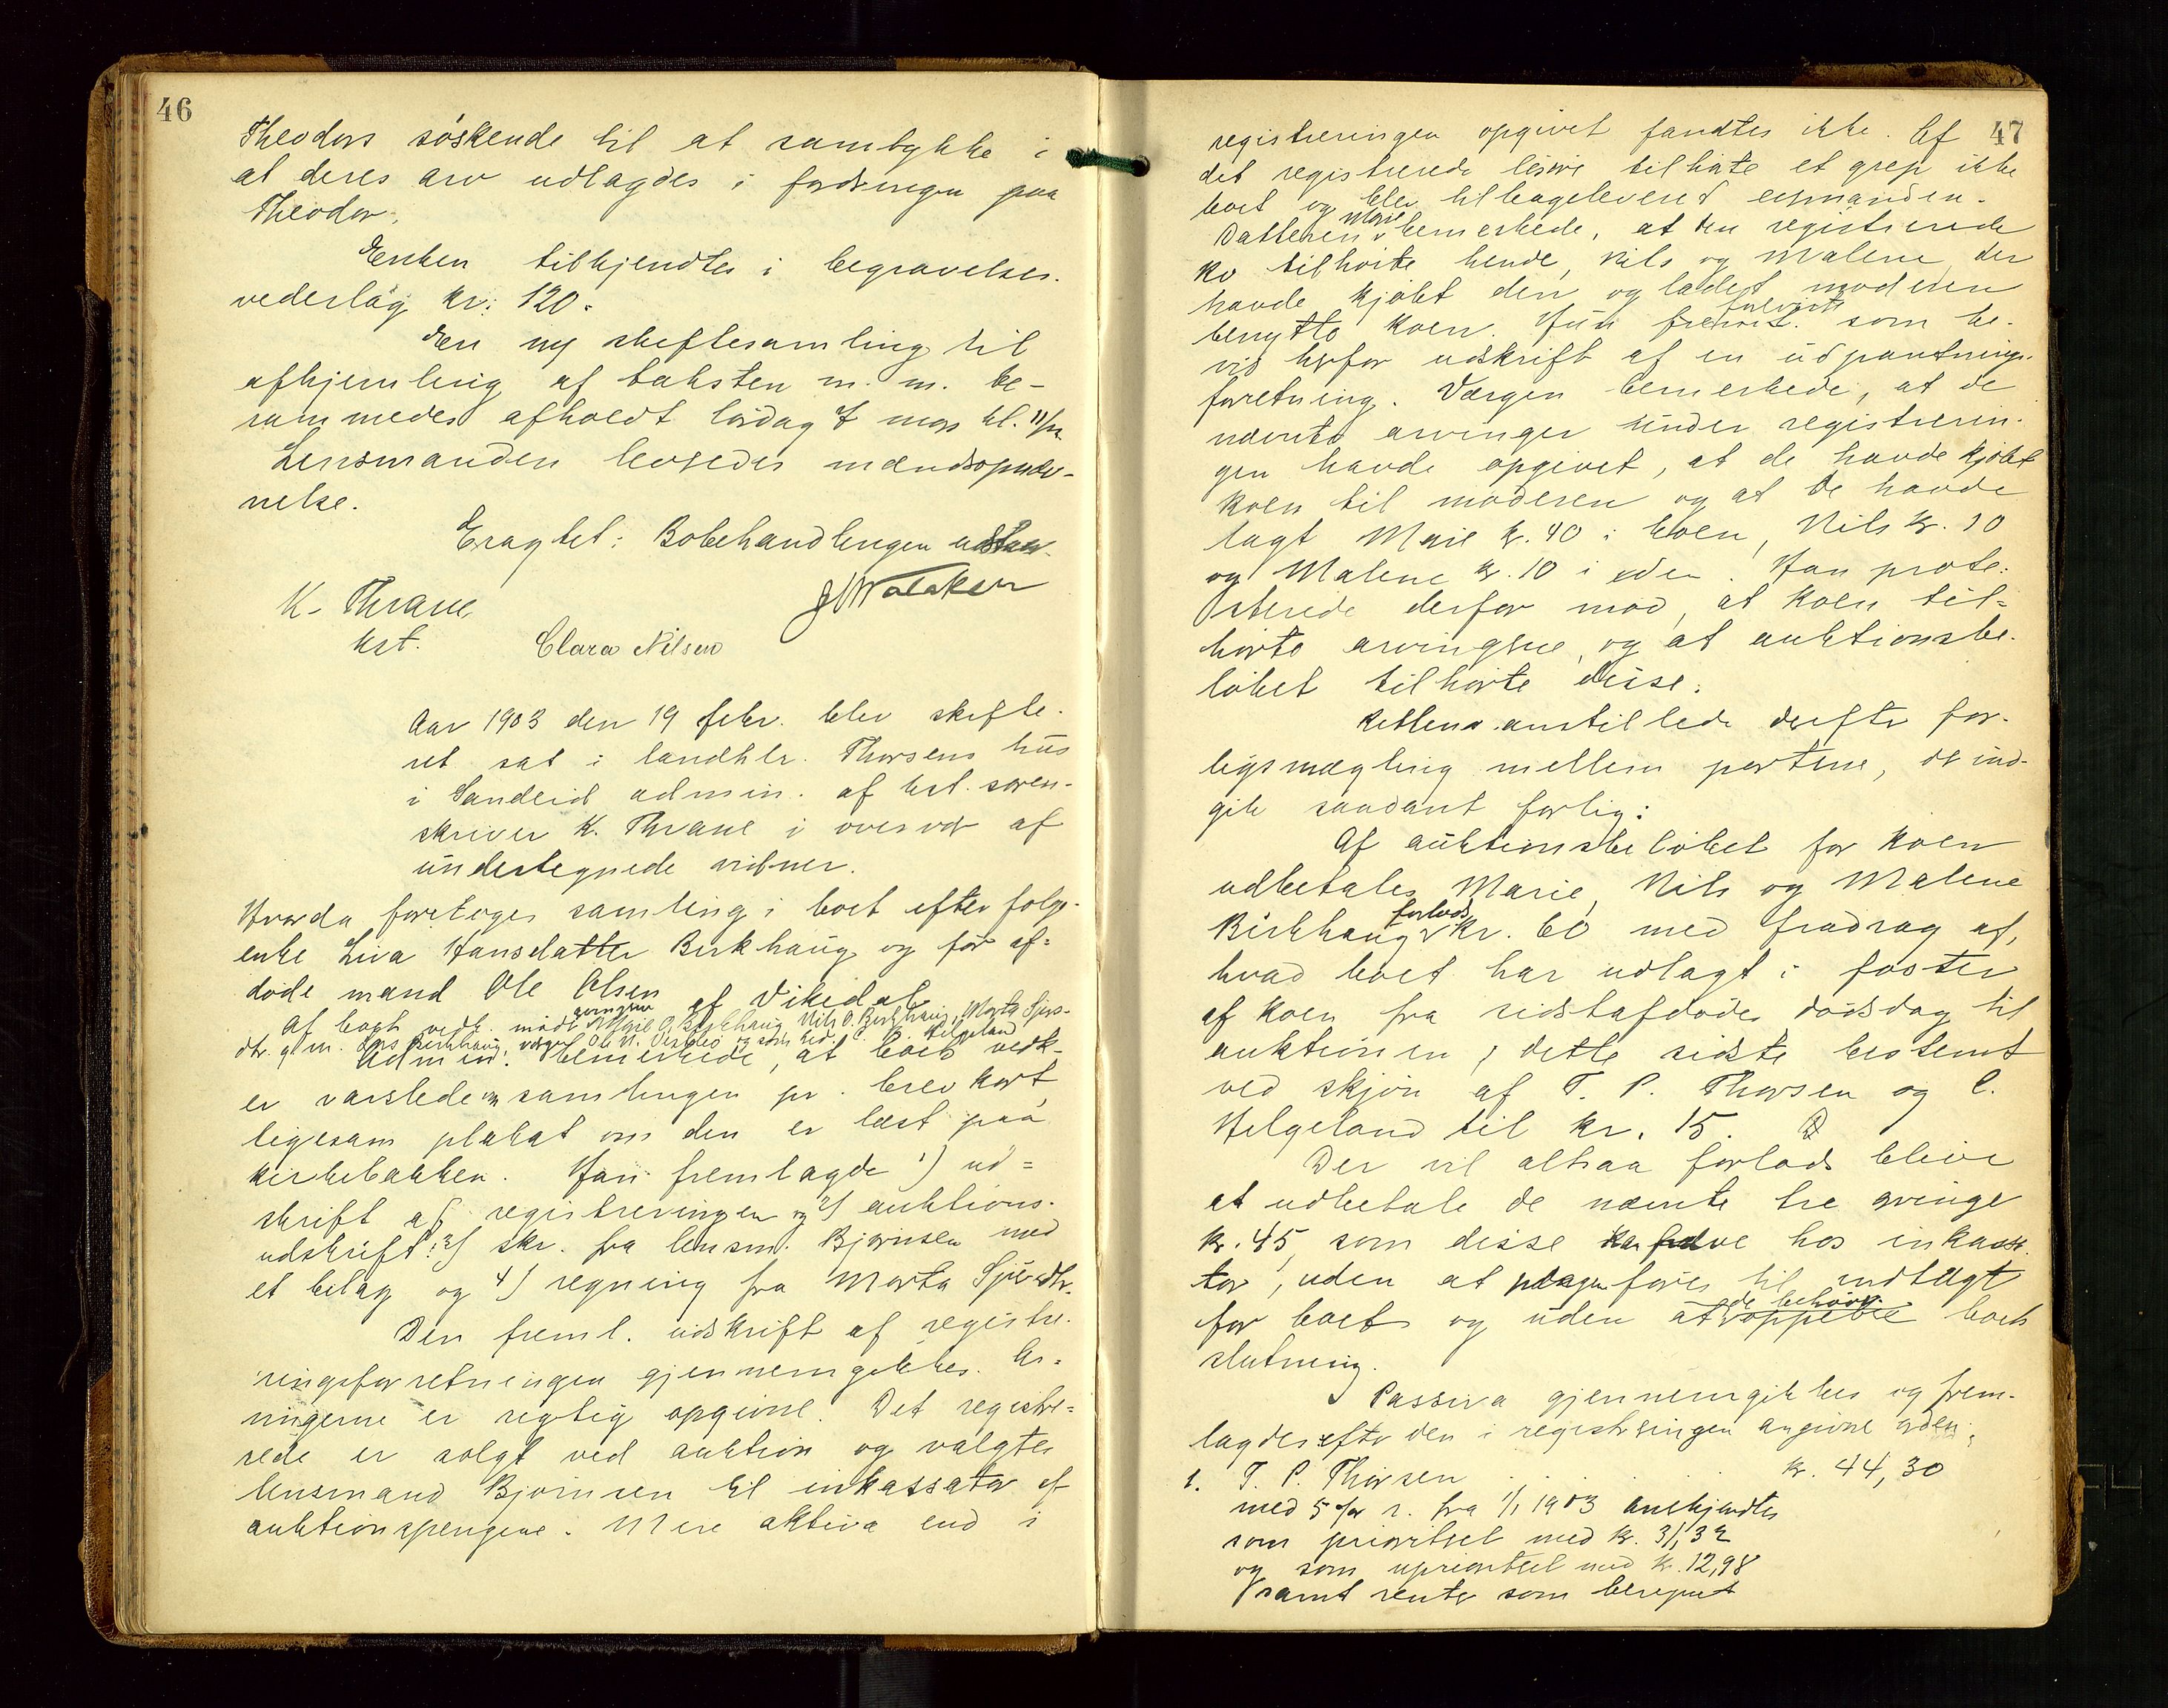 46
Theodors söskende til at samtykke i
at deres arv udlagdes i fordringen paa
Theodor.
Enken tilkjendtes i begravelses-
vederlag kr: 120.
Den ny skiftesamling til
afhjemling af taksten m. m. be-
rammedes afholdt lördag 7 mars kl. 11 fm.
Lensmanden besörger
nelse.
Eragtet: Bobehandlingen udstaar.
K. Thrane
kst.
Clara Nilsen
Aar 1903 den 19 febr. blev skifte-
ret sat i landhlr. Thorsens hus
i Sandeid admin. af kst. soren-
skriver K. Thrane i overvær af
undertegnede vidner.
Hvorda foretoges samling i boet efter folge-
enke Liva Hansdatter Birkhaug og för af-
döde mand Ole Olsen af Vikedal
Af boets vedk. mödte arvingerne Marie O. Birkhaug, Nils O. Birkhaug, Marta Sjurs-
dtr. g. m. Lars Birkhaug, værgen Ole N. og som kred. C. B. Helgeland
Admin. bemerkede, at boets vedk.
er varslede om samlingen pr. brevkort,
ligesom plakat om den er læst paa
kirkebakken. Han fremlagde 1) ud-
skrift af registreringen og 2) auktions-
udskrift; 3) skr. fra lensm. Bjørnsen med
et bilag og 4) regning fra Marta Sjursdtr.
Den freml. udskrift af registre-
ringsforretningen gjennemgikkes. Ar-
vingerne er rigtig opgivne. Det registre-
rede er solgt ved auktion og valgtes
lensmand Bjørnsen til inkassator af
auktionspengene. Mere aktiva end i
47
registreringen opgivet fandtes ikke. Af
det registrerede lösöre tilhörte et grep ikke
boet og blev tilbageleveret eiermanden.
Datteren Marie bemerkede, at den registrerede
ko tilhörte hende, Nils og Malene, der
havde kjöbt den og ladet moderen
benytte koen. Hun foreviste som be-
vis herfor udskrift af en udpantnings-
foretning. Værgen bemerkede, at de
nævnte arvinger under registrerin-
gen havde opgivet, at de havde kjöbt
koen til moderen og at de havde
lagt Marie kr. 40 i koen, Nils kr. 10
og Malene kr. 10 i den. Han prote-
sterede derfor mod, at koen til-
hörte arvingerne, og at auktionsbe-
löbet tilhörte disse.
Retten anstillede derefter for-
ligsmægling mellem parterne, der ind-
gik saadant forlig:
Af auktionsbelöbet for koen
udbetales Marie, Nils og Malene
Birkhaug forlods kr. 60 med fradrag af,
hvad boet har udlagt i foster
af koen fra sidstafdödes dödsdag til
auktionen, dette sidste bestemt
ved skjön af T. P. Thorsen og C.
Helgeland til kr. 15.
Der vil altsaa forlods blive
at udbetale de nævnte tre arvinge
kr. 45, som disse kan hæve hos inkassa-
tor, uden at föres til indtægt
for boet og uden at de behöver oppebie boets
slutning.
Passiva gjennemgikkes og frem-
lagdes efter den i registreringen angivne orden:
1. T. P. Thorsen . . . . . kr. 44,30
med 5 % r. fra 1/1 1903 anerkjendtes
som prioritert med kr. 31,32
og som uprioritert med kr. 12,98
samt renter som beregnet